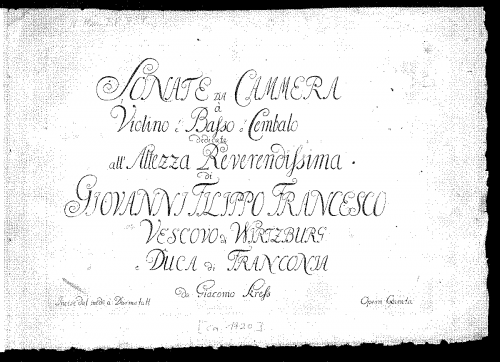 SONATE DA CAMMERA
à
Violino è Basso ò Cembalo
dedicate
all' Altezza Reverendissima.
di
GIOVANNI FILIPPO FRANCESCO
VESCOVO di WIRTZBURG
e DUCA di FRANCONIA
da Giacomo Kress
à Darmstatt
Opera Quinta
[ca. 1720]